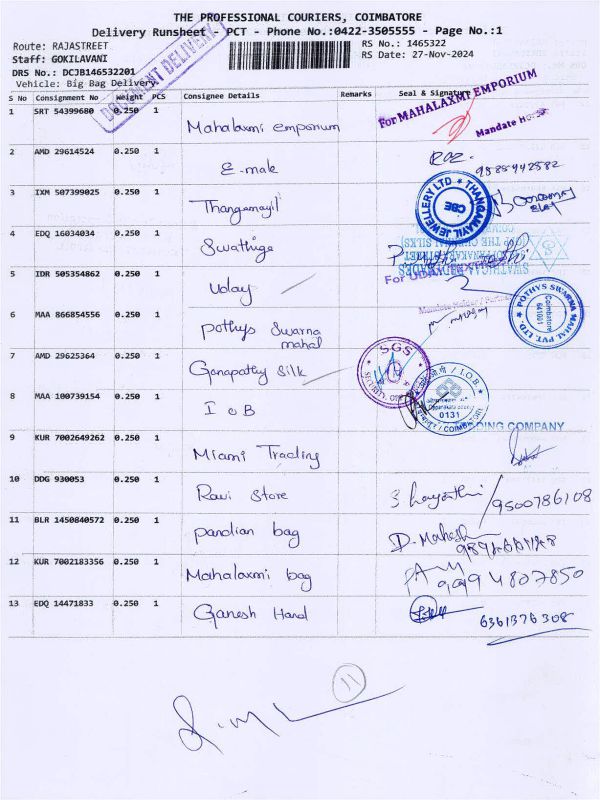 THE PROFESSIONAL COURIERS, COIMBATORE
Delivery Runsheet - PCT - Phone No.:0422-3505555 - Page No.:1
Route: RAJASTREET
RS No.: 1465322
Staff: GOKILAVANI
RS Date: 27-Nov-2024
DRS No.: DCJB146532201
Vehicle: Big Bag Delivery
DOCUMENT DELIVERY
S No Consignment No Weight PCS Consignee Details Remarks Seal & Signature
1 SRT 54399680 0.250 1 Mahalaxmi emporium
For MAHALAXMI EMPORIUM
Mandate Holder
2 AMD 29614524 0.250 1 E-mak
3 IXM 507399025 0.250 1 Thangamayil
THANGAMAYIL JEWELLERY LTD CBE
4 EDQ 16034034 0.250 1 Swathige
5 IDR 505354862 0.250 1 Uday
6 MAA 866854556 0.250 1 Pothys Swarna mahal
POTHYS SWARNA MAHAL PVT. LTD. Coimbatore 641001
7 AMD 29625364 1 Ganapathy Silk
SGS
8 MAA 100739154 0.250 1 I O B
I.O.B. 0131
9 KUR 7002649262 0.250 1 Miami Trading
DING COMPANY
10 DDG 930053 0.250 1 Ravi Store 9500786108
11 BLR 1450840572 0.250 1 pandian bag D. Mahesh
12 KUR 7002183356 0.250 1 Mahalaxmi bag 9994807850
13 EDQ 14471833 0.250 1 Ganesh Hand 6361376308
11